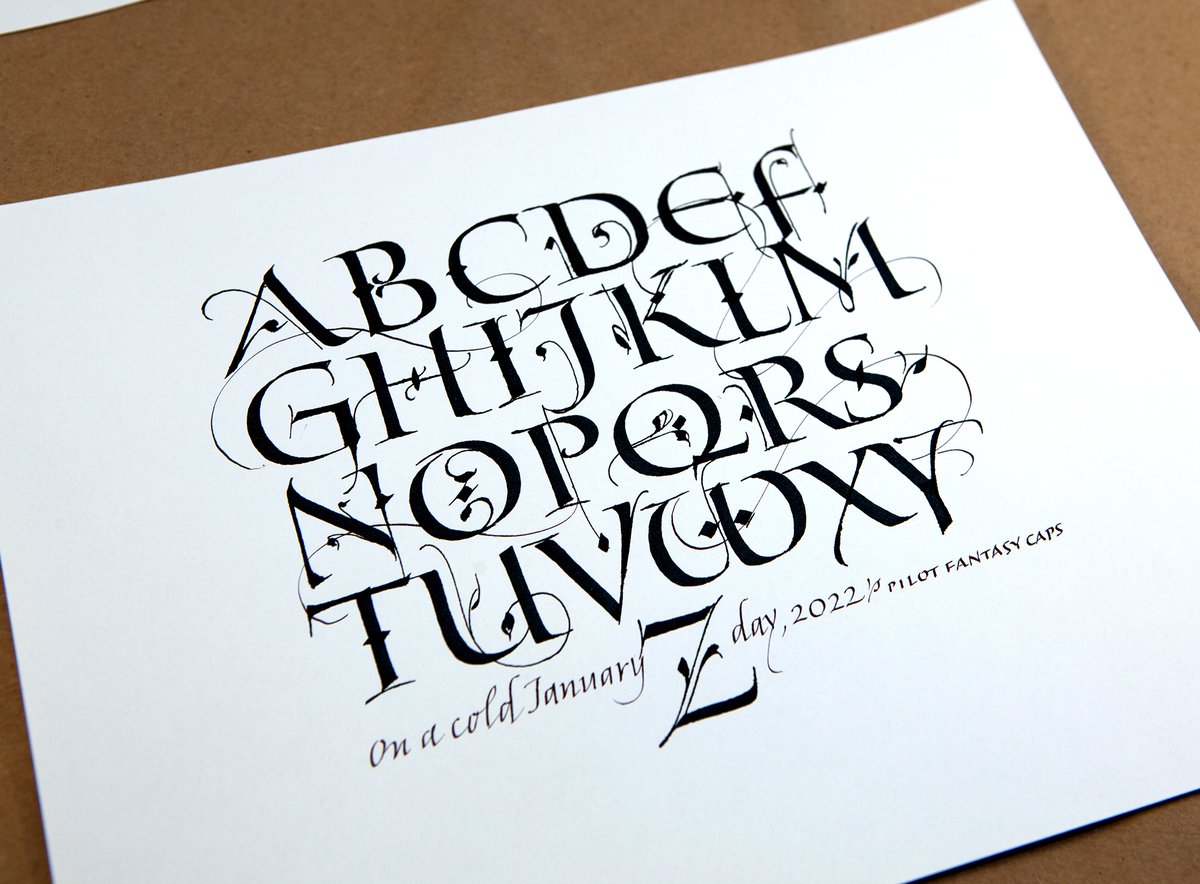 ABCDEF
GHIJKLM
NOPQRS
TUVWXY
On a cold January Z day, 2022 PILOT FANTASY CAPS